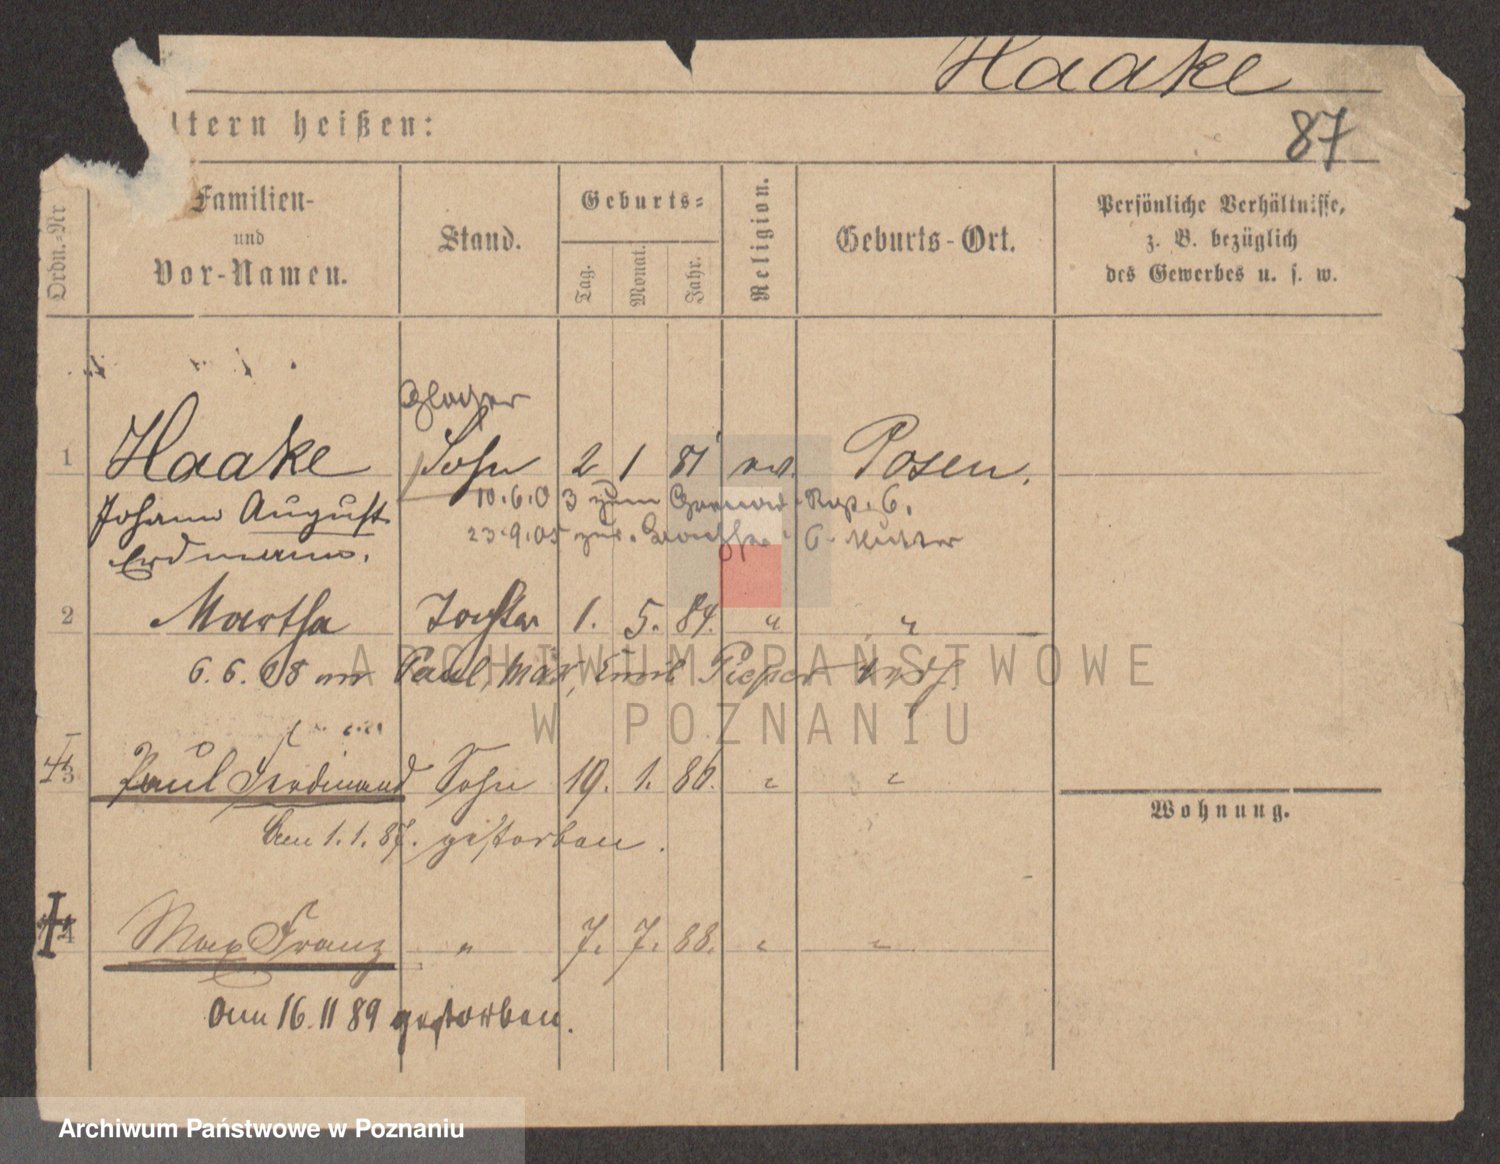 Haake
87
ltern heißen:
Ordn.-Nr
Familien-
und
Vor-Namen.
Stand.
Geburts-
Tag. Monat. Jahr.
Religion.
Geburts-Ort.
Persönliche Verhältnisse,
z. B. bezüglich
des Gewerbes u. s. w.
1 Haake Sohn 2 1 81 ev. Posen.
10.6.03 zum Grenad. Reg. 6.
Johann August
23.9.05 zur 6.
Erdmann.
2 Martha Tochter 1. 5. 84. " "
6.6.08 Paul, Max, Emil Pieper
ARCHIWUM PAŃSTWOWE
W POZNANIU
3 Paul Ferdinand Sohn 19. 1. 86. " "
Wohnung.
Am 1.1.87. gestorben.
4 Max Franz " 7. 7. 88. " "
Am 16.11 89 gestorben.
Archiwum Państwowe w Poznaniu